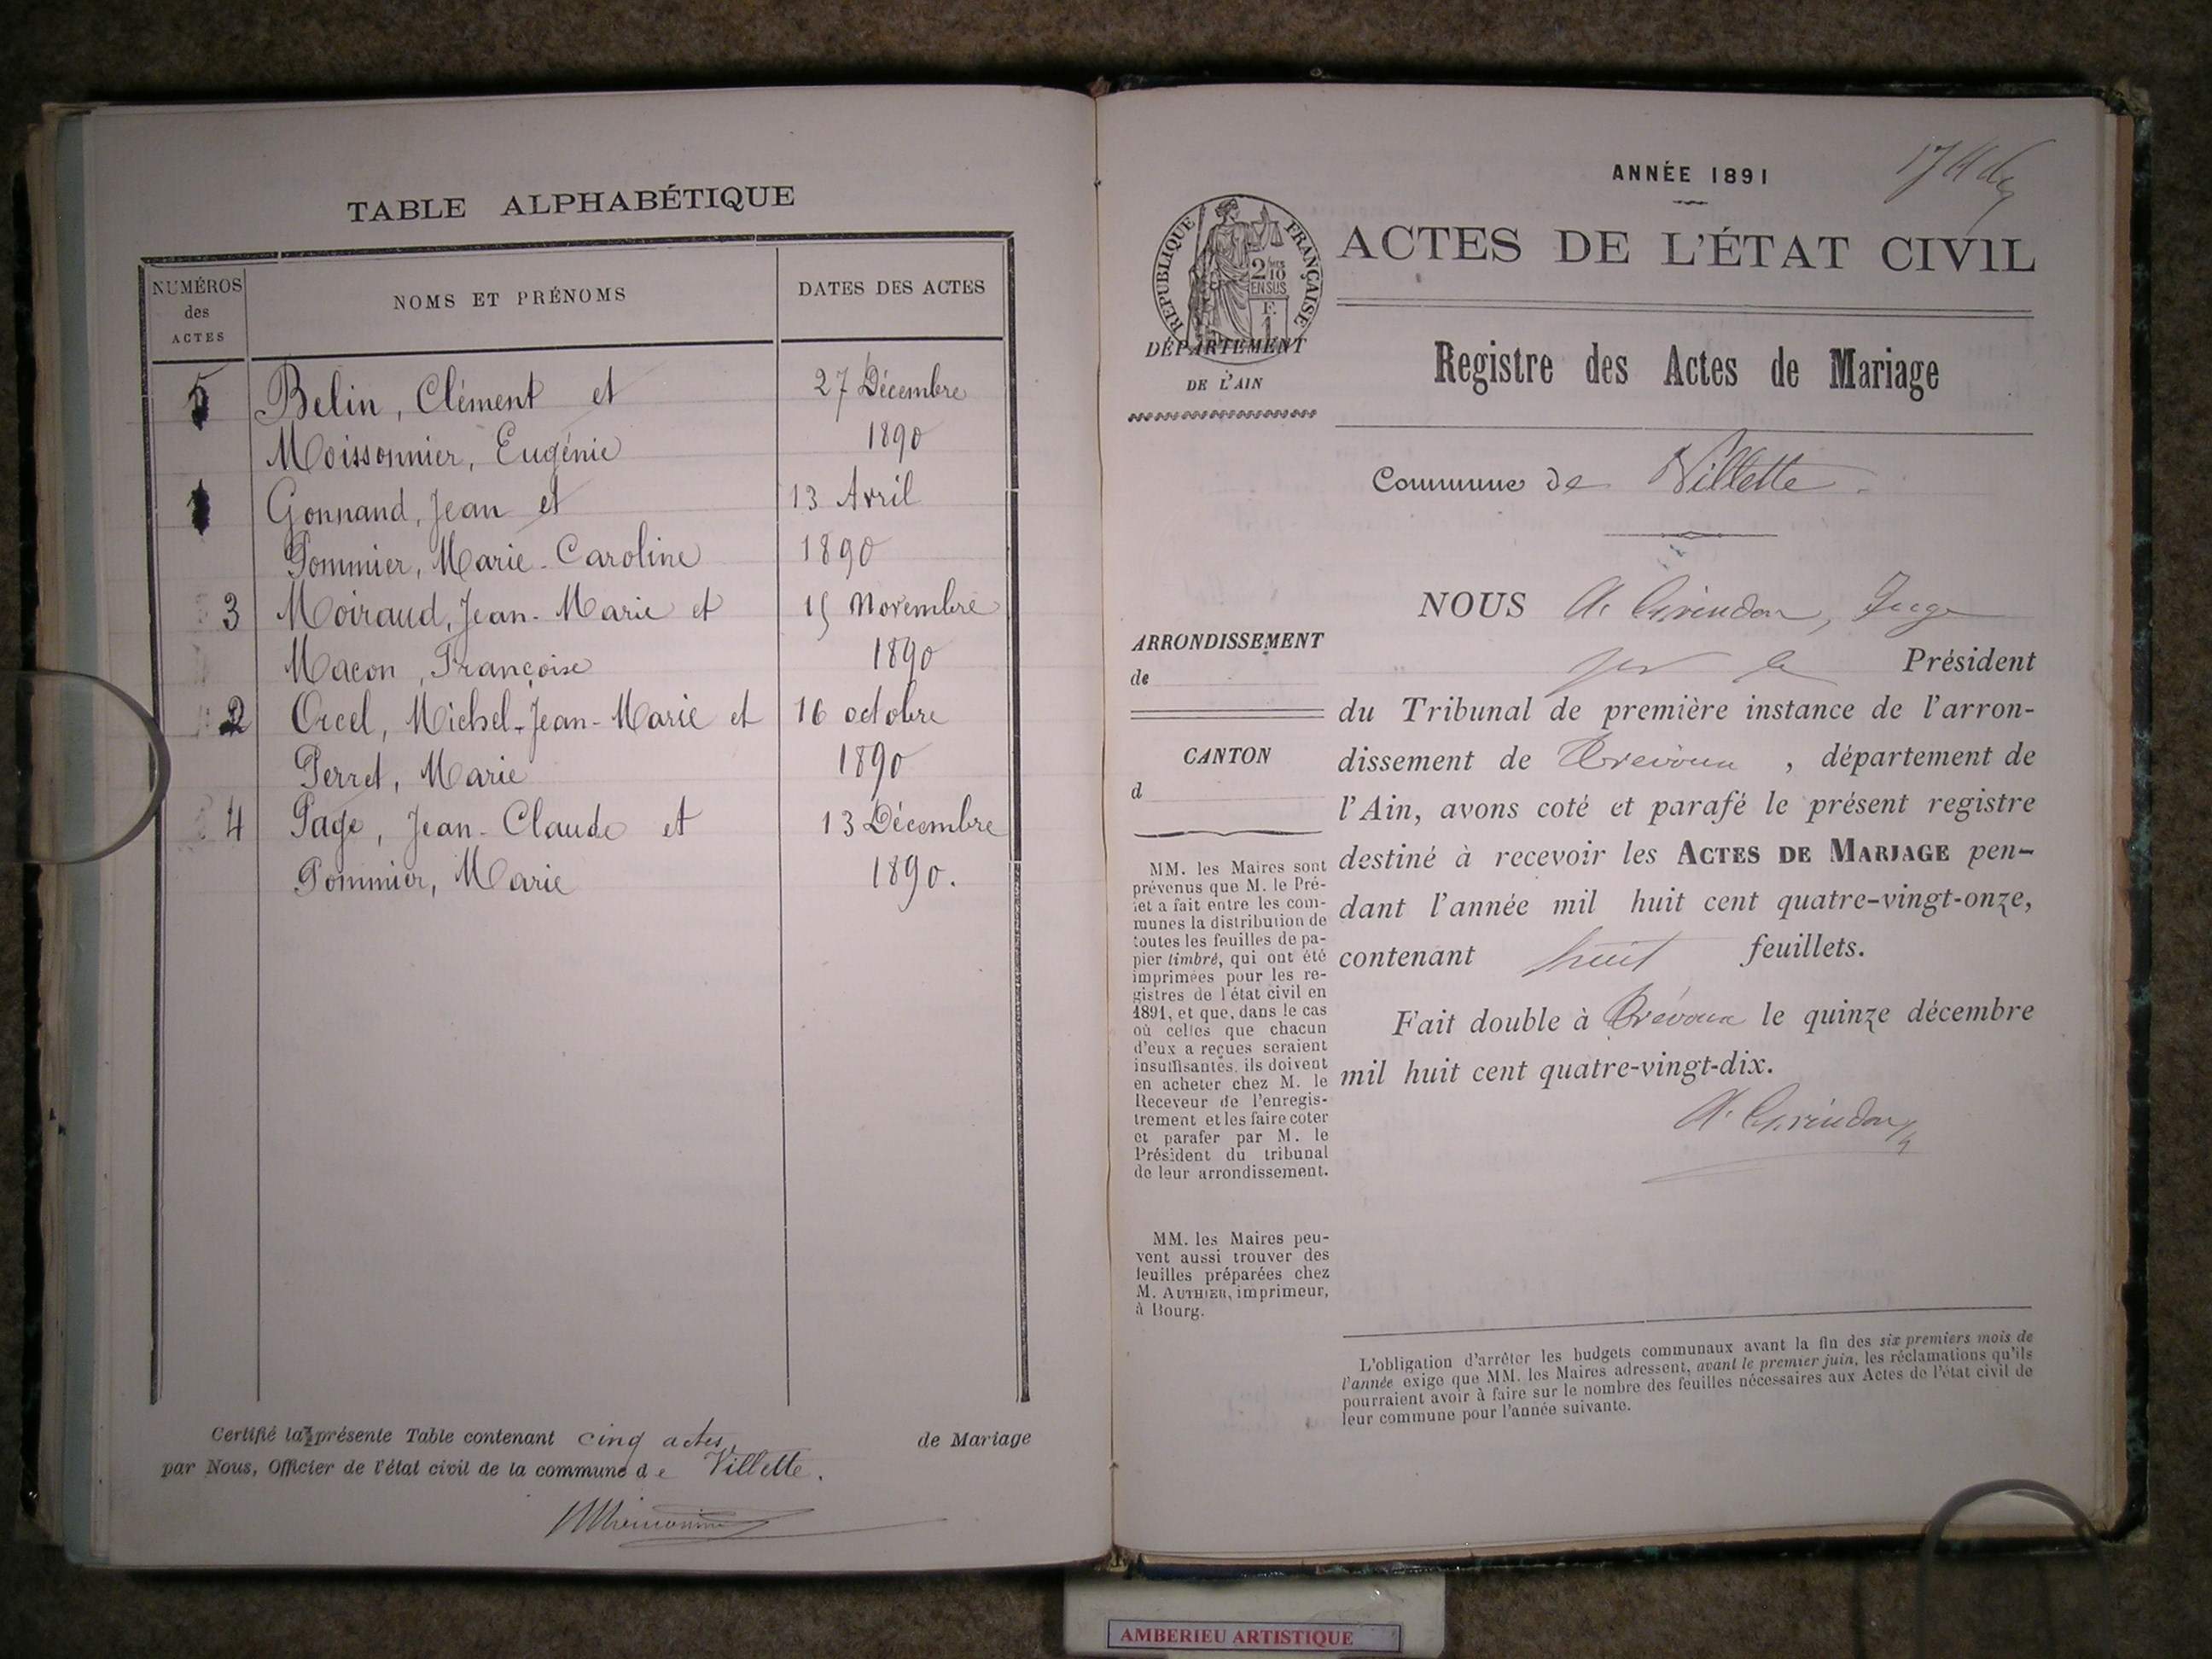 TABLE ALPHABÉTIQUE
NUMÉROS
des
ACTES
NOMS ET PRÉNOMS
DATES DES ACTES
5 Belin, Clément et 27 Décembre
Moissonnier, Eugénie 1890
1 Gonnand, Jean et 13 Avril
Pommier, Marie-Caroline 1890
3 Moiraud, Jean-Marie et 15 Novembre
Macon, Françoise 1890
2 Orcel, Michel-Jean-Marie et 16 octobre
Perret, Marie 1890
4 Page, Jean-Claude et 13 Décembre
Pommier, Marie 1890.
Certifié la présente Table contenant cinq actes, de Mariage
par Nous, Officier de l'état civil de la commune de Villette.
ANNÉE 1891
ACTES DE L'ÉTAT CIVIL
RÉPUBLIQUE FRANÇAISE
2/10
EN SUS
F.
1
DÉPARTEMENT
DE L'AIN
Registre des Actes de Mariage
Commune de Villette.
ARRONDISSEMENT
de
CANTON
d
MM. les Maires sont
prévenus que M. le Pré-
fet a fait entre les com-
munes la distribution de
toutes les feuilles de pa-
pier timbré, qui ont été
imprimées pour les re-
gistres de l'état civil en
1891, et que, dans le cas
où celles que chacun
d'eux a reçues seraient
insuffisantes, ils doivent
en acheter chez M. le
Receveur de l'enregis-
trement et les faire coter
et parafer par M. le
Président du tribunal
de leur arrondissement.
MM. les Maires peu-
vent aussi trouver des
feuilles préparées chez
M. AUTHIER, imprimeur,
à Bourg.
NOUS A. Girindon, Juge
pr le Président
du Tribunal de première instance de l'arron-
dissement de Trévoux, département de
l'Ain, avons coté et parafé le présent registre
destiné à recevoir les ACTES DE MARIAGE pen-
dant l'année mil huit cent quatre-vingt-onze,
contenant huit feuillets.
Fait double à Trévoux le quinze décembre
mil huit cent quatre-vingt-dix.
A. Girindon
L'obligation d'arrêter les budgets communaux avant la fin des six premiers mois de
l'année exige que MM. les Maires adressent, avant le premier juin, les réclamations qu'ils
pourraient avoir à faire sur le nombre des feuilles nécessaires aux Actes de l'état civil de
leur commune pour l'année suivante.
AMBERIEU ARTISTIQUE